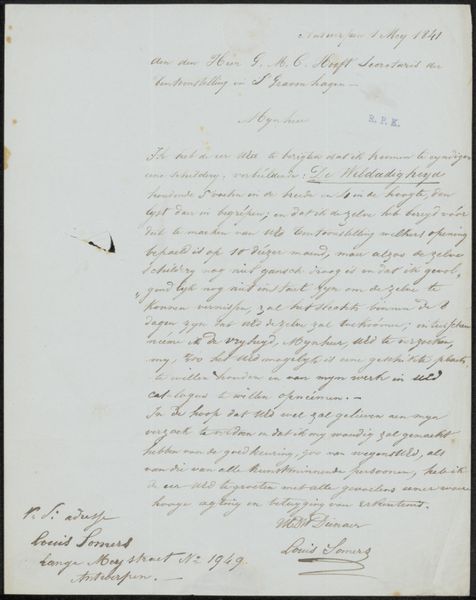 Antwerpen 1 Mey 1841
Aen den Heer G. M. C. Hooft Secretaris der
tentoonstelling in S'Gravenhagen –
Mynheer
R. P. K.
Ik heb de eer UEd te berigten dat ik koomen te eyndigen
eene schildery, verbeeldende: De Weldadigheyd
houdende 5 voeten in de breede en 4 in de hoogte, den
lyst daer in begrepen; en dat ik dezelve heb bereyd vóór
deel te maeken van UEd tentoonstelling welkers opening
bepaeld is op 10 dezer maend, maer alzoo dezelve
schildery nog niet gansch droog is en dat ik gevol-
gentlyk nog niet in staet zyn om dezelve te
konnen vernissen, zal het slechts binnen de 8
dagen zyn dat UEd dezelve zal toekoomen; intusschen
neeme ik de vryheyd, Mynheer, UEd te verzoeken,
my, zoo het UEd mogelyk is eene geschikte plaets
te willen houden en van myn werk in UEd
catalogus te willen opneémen. –
In de hoop dat UEd wel zal gelieven aen myn
verzoek te voldoen en dat ik my waerdig zal gemaekt
hebben van de goedkeuring, zoo van wegens UEd, als
van die van alle kunstminnende persoonen, heb ik
de eer UEd te groeten met alle gevoelens eener waere
hooge agting en betuyging van erkentenis.
UEd Dienaer
Louis Somers
P. S. adresse
Louis Somers
Lange Mey straet No 1949.
Antwerpen. –